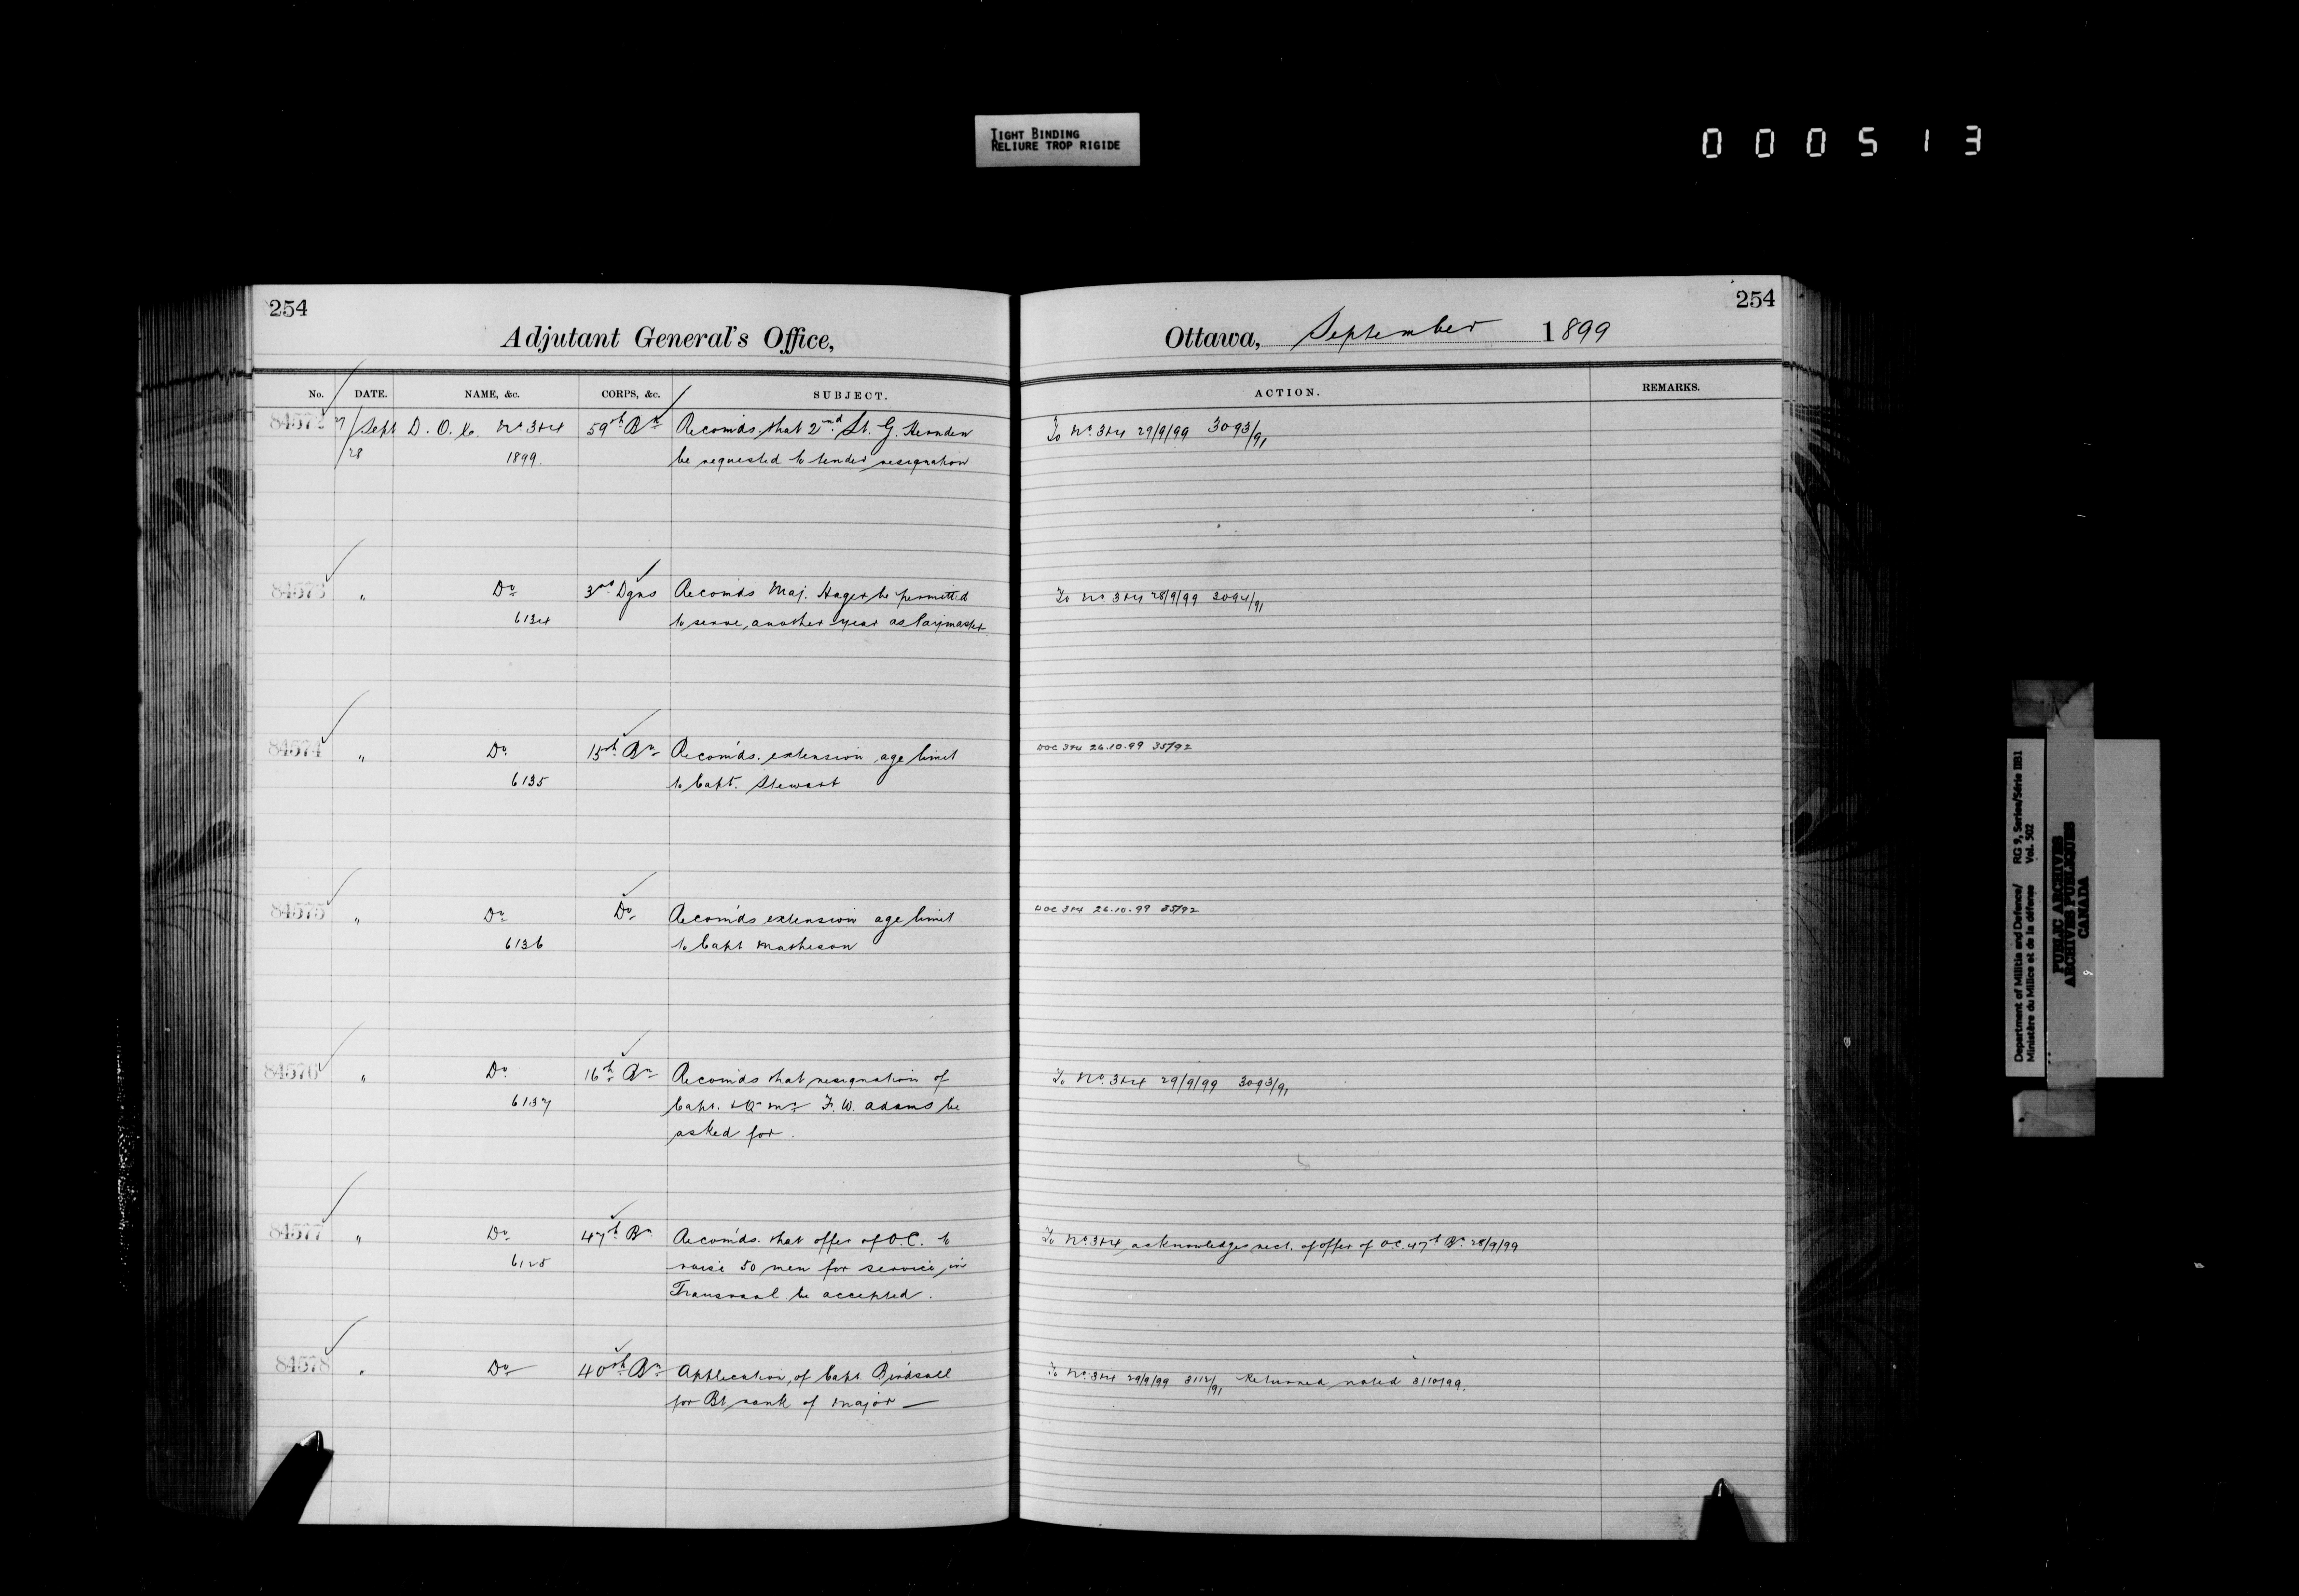 TIGHT BINDING
RELIURE TROP RIGIDE
000513
254
Adjutant General's Office,
No. DATE. NAME, &c. CORPS, &c. SUBJECT.
84572 27/Sept D. O. C. No 3&4 59th Bn Recom'ds that 2nd Lt. G. Hernden
/28 1899. be requested to tender resignation
84573 " Do 3rd Dgns Recom'ds Maj. Hager be permitted
6134 to serve another year as Paymaster
84574 " Do 15th Bn Recom'ds. extension age limit
6135 to Capt. Stewart
84575 " Do Do Recom'ds extension age limit
6136 to Capt Matheson
84576 " Do 16th Bn Recom'ds that resignation of
6137 Capt. & Q Mr F. W. Adams be
asked for.
84577 " Do 47th Bn Recom'ds. that offer of O.C. to
6125 raise 50 men for service in
Transvaal be accepted.
84578 " Do 40th Bn Application of Capt. Birdsall
for Bt rank of Major —
254
Ottawa, September 1899
ACTION. REMARKS.
To No. 3&4 29/9/99 3093/91
To No 3&4 28/9/99 3094/91
DOC 3&4 26.10.99 35/92
DOC 3&4 26.10.99 35/92
To No. 3&4 29/9/99 3093/91
To No 3&4 acknowledges rect. of offer of O.C. 47th Bn 28/9/99
To No. 3&4 29/9/99 3112/91 Returned noted 3/10/99.
Department of Militia and Defence/ RG 9, Series/Série IIB1
Ministère du Milice et de la défense Vol. 502
PUBLIC ARCHIVES
ARCHIVES PUBLIQUES
CANADA